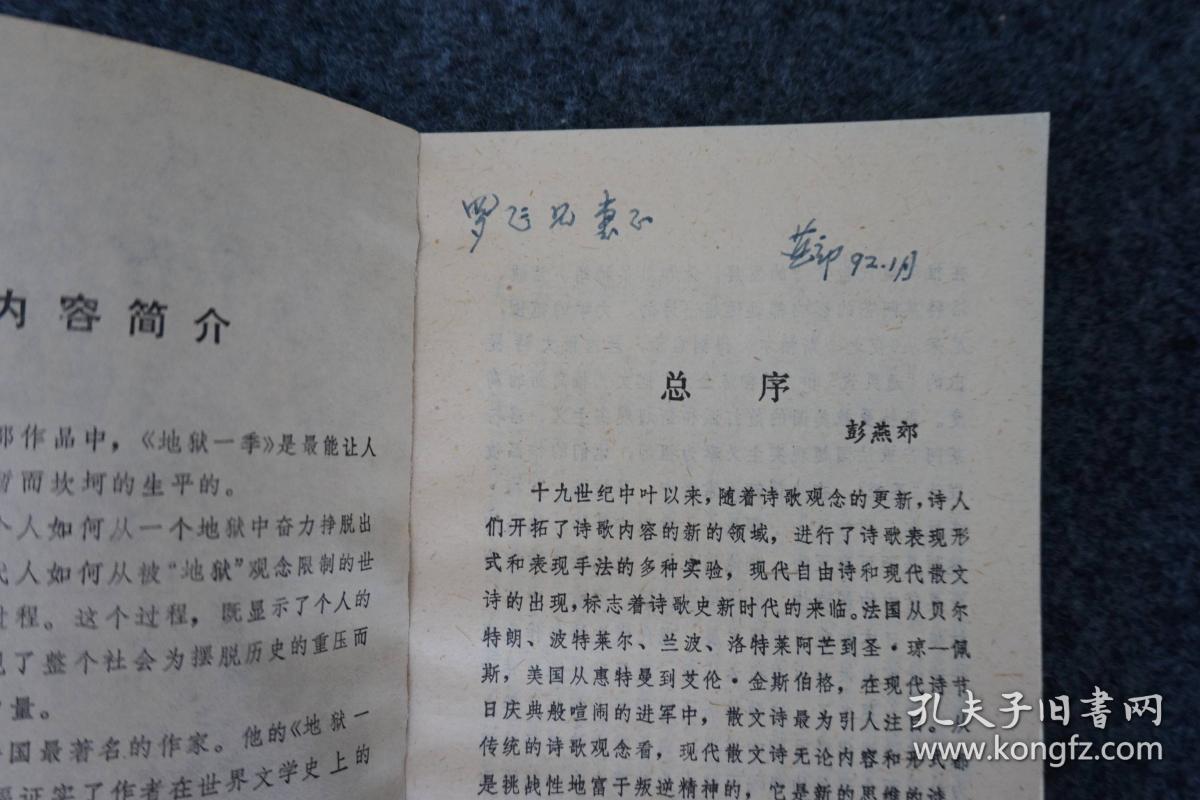 内容简介
部作品中，《地狱一季》是最能让人
暂而坎坷的生平的。
个人如何从一个地狱中奋力挣脱出
代人如何从被“地狱”观念限制的世
过程。这个过程，既显示了个人的
现了整个社会为摆脱历史的重压而
力量。
国最著名的作家。他的《地狱一
证实了作者在世界文学史上的
罗飞兄惠正
燕郊 92.1月
总序
彭燕郊
十九世纪中叶以来，随着诗歌观念的更新，诗人
们开拓了诗歌内容的新的领域，进行了诗歌表现形
式和表现手法的多种实验，现代自由诗和现代散文
诗的出现，标志着诗歌史新时代的来临。法国从贝尔
特朗、波特莱尔、兰波、洛特莱阿芒到圣·琼—佩
斯，美国从惠特曼到艾伦·金斯伯格，在现代诗节
日庆典般喧闹的进军中，散文诗最为引人注目。从
传统的诗歌观念看，现代散文诗无论内容和形式都
是挑战性地富于叛逆精神的，它是新的思维的诗
孔夫子旧书网
www.kongfz.com